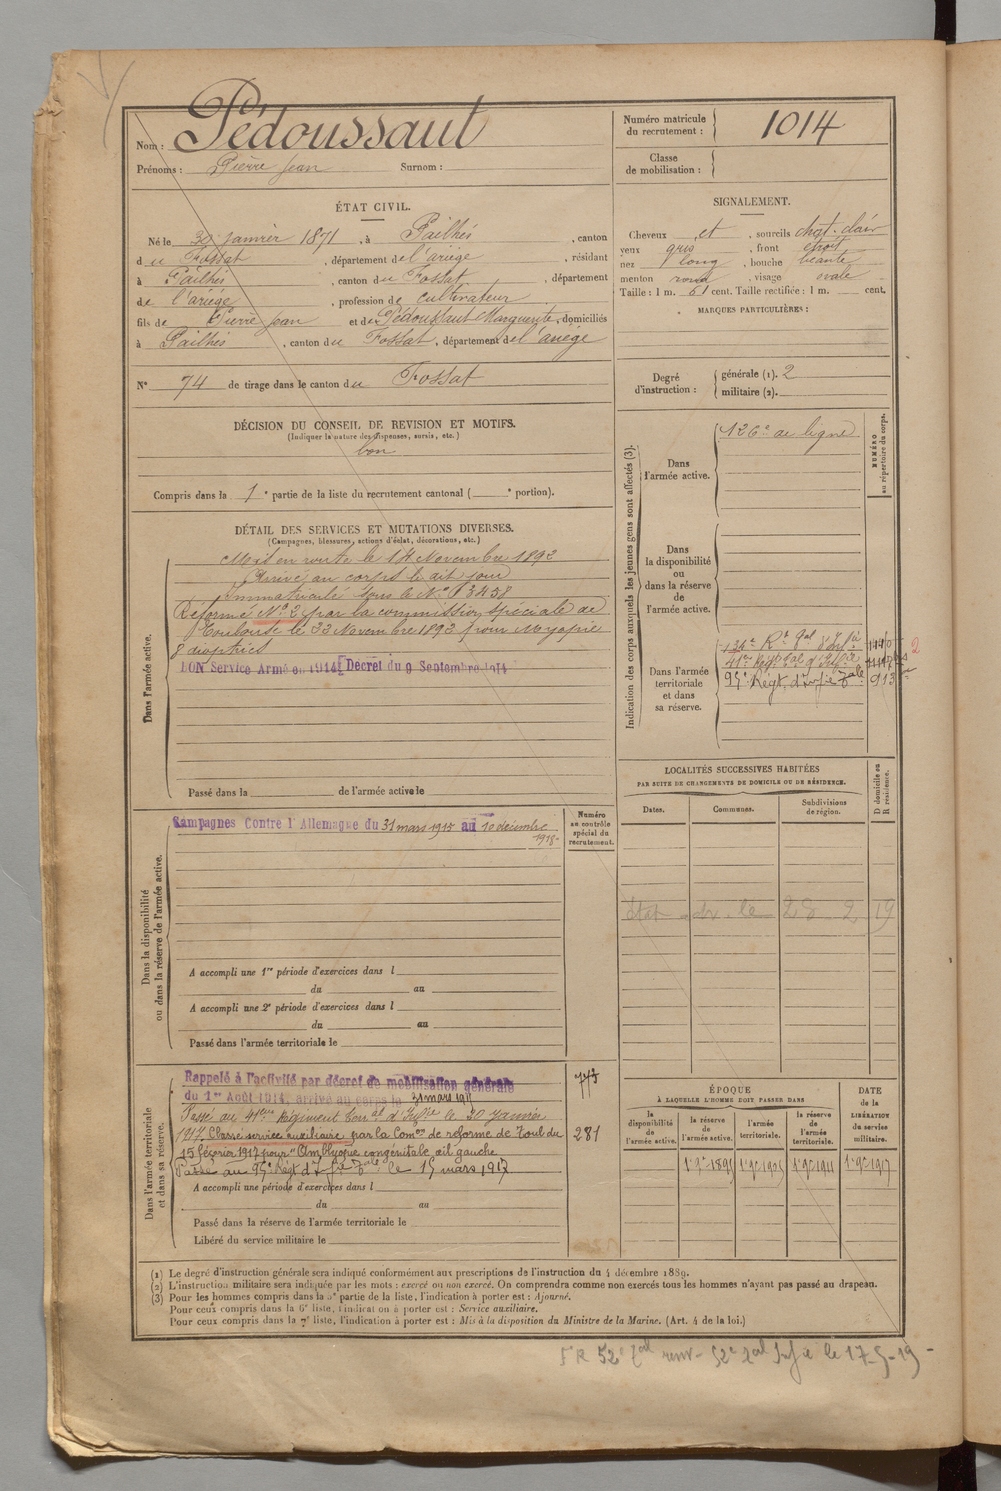 Nom : Pédoussaut
Prénoms : Pierre Jean Surnom :
Numéro matricule du recrutement : 1014
Classe de mobilisation :
ÉTAT CIVIL.
Né le 30 janvier 1871, à Pailhès, canton
du Fossat, département de l'ariège, résidant
à Pailhès, canton du Fossat, département
de l'ariège, profession de cultivateur
fils de Pierre Jean et de Pédoussaut Marguerite, domiciliés
à Pailhès, canton du Fossat, département de l'ariège
N° 74 de tirage dans le canton du Fossat
SIGNALEMENT.
Cheveux et, sourcils chat. clair
yeux gris, front étroit
nez long, bouche béante
menton rond, visage ovale
Taille : 1 m. 61 cent. Taille rectifiée : 1 m. cent.
MARQUES PARTICULIÈRES :
Degré d'instruction : générale (1). 2
militaire (2).
DÉCISION DU CONSEIL DE REVISION ET MOTIFS.
(Indiquer la nature des dispenses, sursis, etc.)
bon
Compris dans la 1e partie de la liste du recrutement cantonal ( e portion).
DÉTAIL DES SERVICES ET MUTATIONS DIVERSES.
(Campagnes, blessures, actions d'éclat, décorations, etc.)
Dans l'armée active.
Mis en route le 14 Novembre 1892
Arrivé au corps le dit jour
Immatriculé sous le N° 3458
Réformé N° 2 par la commission spéciale de
Toulouse le 22 Novembre 1892 pour Myopie
8 dioptries
BON Service Armé en 1914 Décret du 9 Septembre 1914
Passé dans la de l'armée active le
Indication des corps auxquels les jeunes gens sont affectés (3).
NUMÉRO au répertoire du corps.
Dans l'armée active.
126e de ligne
Dans la disponibilité ou dans la réserve de l'armée active.
Dans l'armée territoriale et dans sa réserve.
134e Rt gal d'Infie
41e Régt tal d'Infie
95e Régt d'Infie Tale 913
2
LOCALITÉS SUCCESSIVES HABITÉES
PAR SUITE DE CHANGEMENTS DE DOMICILE OU DE RÉSIDENCE.
Dates. Communes. Subdivisions de région. D domicile ou R résidence.
28 2 19
Dans la disponibilité ou dans la réserve de l'armée active.
Campagnes Contre l'Allemagne du 31 mars 1915 au 10 décembre
1918
Numéro au contrôle spécial du recrutement.
A accompli une 1re période d'exercices dans l
du au
A accompli une 2e période d'exercices dans l
du au
Passé dans l'armée territoriale le
Dans l'armée territoriale et dans sa réserve.
Rappelé à l'activité par décret de mobilisation générale
du 1er Août 1914, arrivé au corps le 31 mars 1915
Passé au 41eme Régiment Terral d'Infie le 30 Janvier
1917. Classé service auxiliaire par la Comon de réforme de Toul du
15 février 1917 pour "Amblyopie congénitale œil gauche
Passé au 95e Régt d'Infie Tale le 15 mars 1917
773
281
A accompli une période d'exercices dans l
du au
Passé dans la réserve de l'armée territoriale le
Libéré du service militaire le
ÉPOQUE
À LAQUELLE L'HOMME DOIT PASSER DANS
la disponibilité de l'armée active. la réserve de l'armée active. l'armée territoriale. la réserve de l'armée territoriale.
DATE de la LIBÉRATION DU service militaire.
1er 9e 1895 1er 9e 1905 1er 9e 1911 1er 9e 1917
(1) Le degré d'instruction générale sera indiqué conformément aux prescriptions de l'instruction du 4 décembre 1889.
(2) L'instruction militaire sera indiquée par les mots : exercé ou non exercé. On comprendra comme non exercés tous les hommes n'ayant pas passé au drapeau.
(3) Pour les hommes compris dans la 5e partie de la liste, l'indication à porter est : Ajourné.
Pour ceux compris dans la 6e liste, l'indication à porter est : Service auxiliaire.
Pour ceux compris dans la 7e liste, l'indication à porter est : Mis à la disposition du Ministre de la Marine. (Art. 4 de la loi.)
52e Tal 52e Tal Infie le 17-5-19